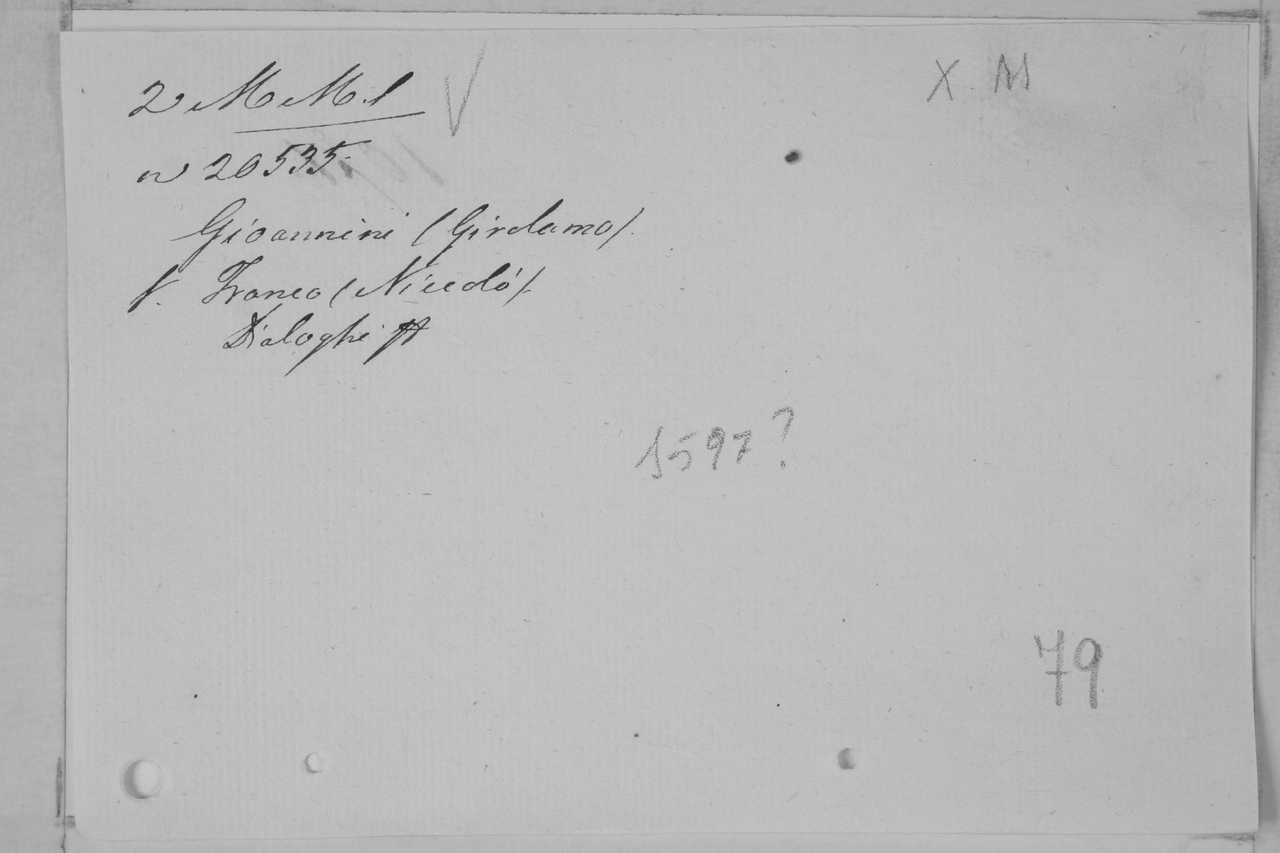 2 M M. l V X M
n 20535.
Gioannini (Girolamo).
V. Franco (Niccoló).
Dialoghi
1597?
79